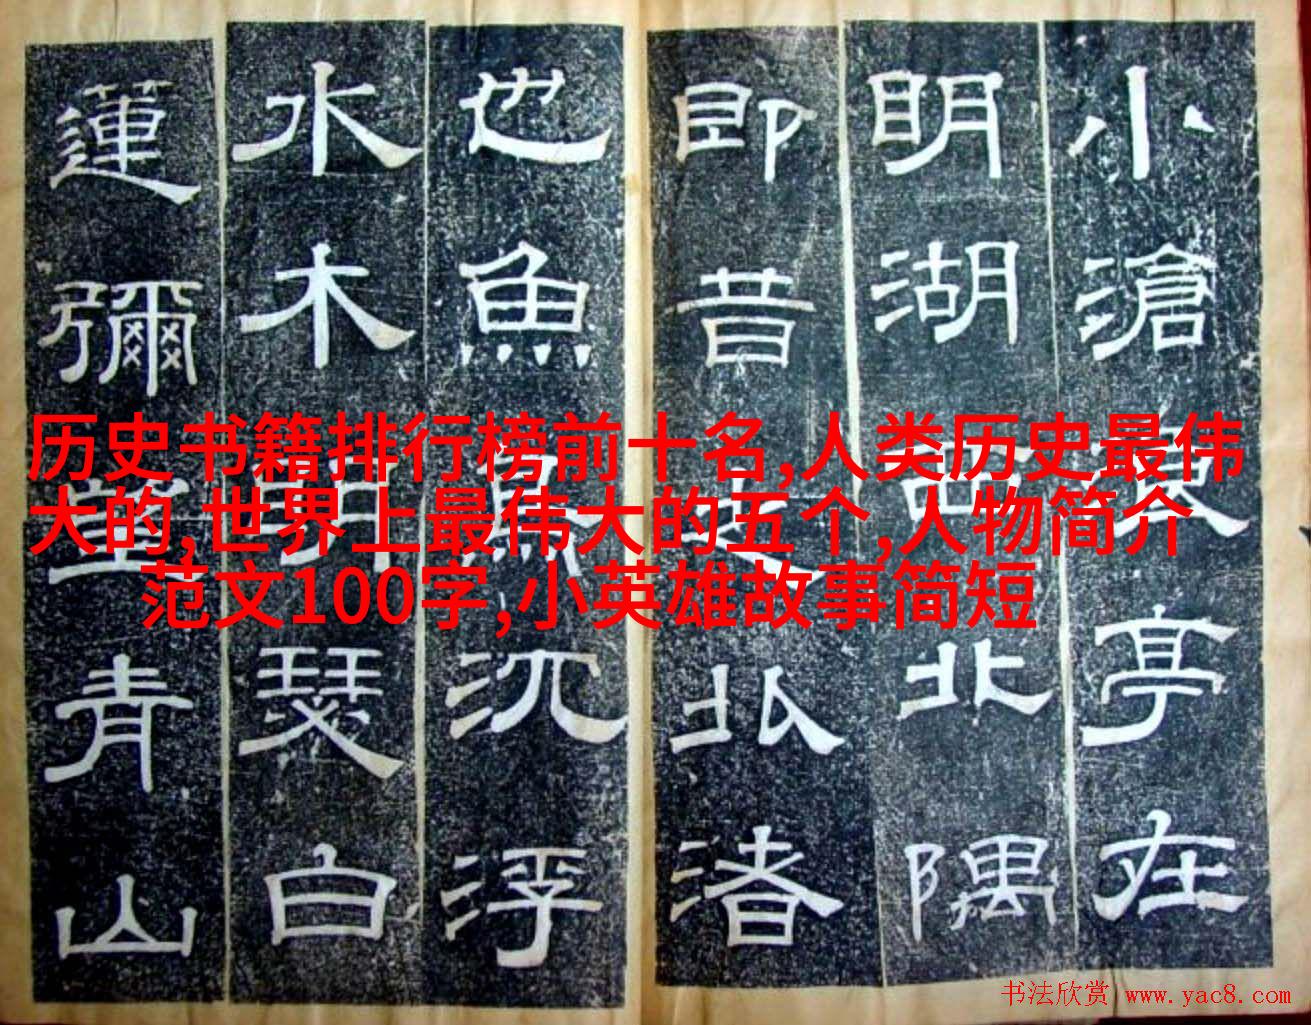 小滄浪亭在
明湖西北隅
即昔北渚
也魚鳥沉浮
水木明瑟白
蓮彌望青山
历史书籍排行榜前十名,人类历史最伟
大的,世界上最伟大的五个,人物简介
范文100字,小英雄故事简短
书法欣赏 www.yac8.com